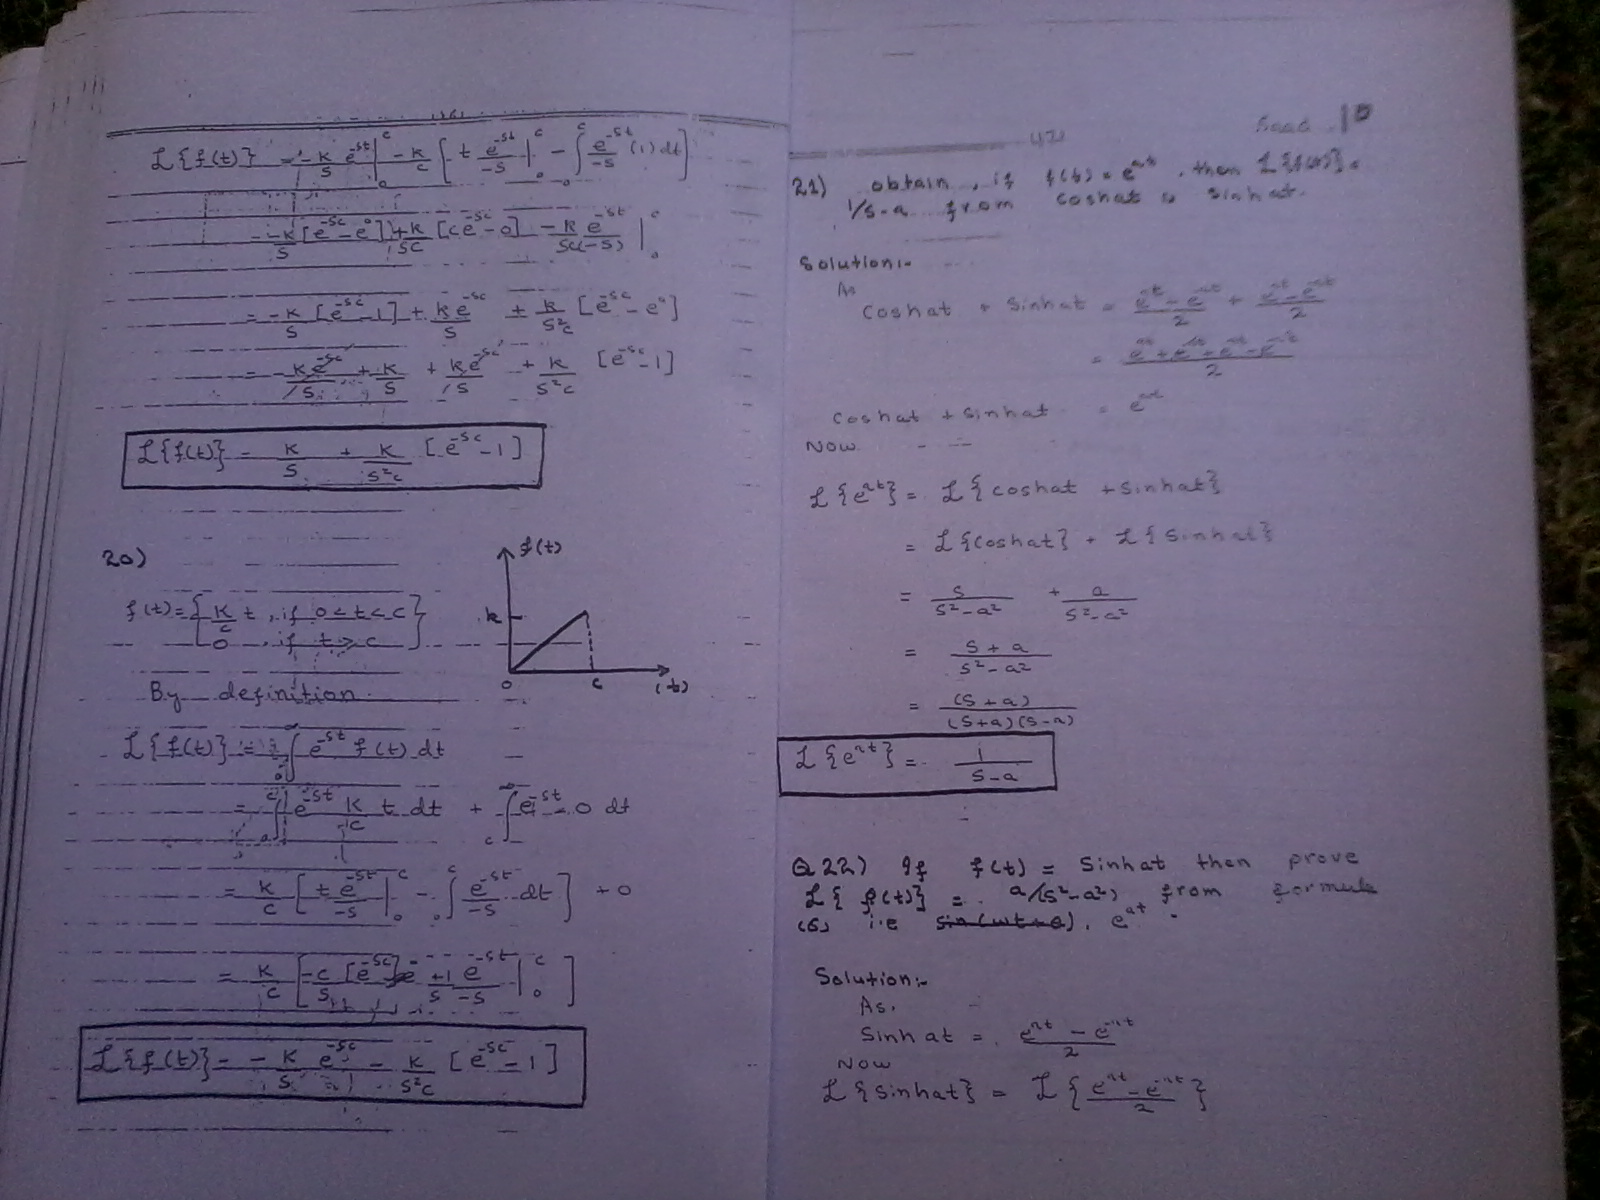 L{f(t)} = -k/s e^-st |₀^c - k/c [ t e^-st/-s |₀^c - ∫₀^c e^-st/-s (1) dt ]
= -k/s [e^-sc - e^0] + k/sc [c e^-sc - 0] - k e^-st/sc(-s) |₀^c
= -k/s [e^-sc - 1] + k e^-sc/s + k/s²c [e^-sc - e^0]
= -k e^-sc/s + k/s + k e^-sc/s + k/s²c [e^-sc - 1]
L{f(t)} = k/s + k/s²c [e^-sc - 1]
20)
f(t)
k
0 c (t)
f(t) = { k/c t , if 0 < t < c
0 , if t > c }
By definition
L{f(t)} = ∫₀^∞ e^-st f(t) dt
= ∫₀^c e^-st k/c t dt + ∫c^∞ e^-st . 0 dt
= k/c [ t e^-st/-s |₀^c - ∫₀^c e^-st/-s dt ] + 0
= k/c [ -c/s [e^-sc] + 1/s e^-st/-s |₀^c ]
L{f(t)} = -k/s e^-sc - k/s²c [e^-sc - 1]
21) obtain , if f(t) = e^at , then L{f(t)} =
1/s-a from coshat & sinhat.
Solution:-
As
coshat + sinhat = e^at - e^-at/2 + e^at - e^-at/2
= e^at + e^-at + e^at - e^-at/2
coshat + sinhat = e^at
Now
L{e^at} = L{coshat + sinhat}
= L{coshat} + L{sinhat}
= s/s²-a² + a/s²-a²
= s+a/s²-a²
= (s+a)/(s+a)(s-a)
L{e^at} = 1/s-a
Q22) If f(t) = Sinhat then prove
L{f(t)} = a/(s²-a²) from formula
(6) i.e sin(wt+θ), e^at .
Solution:-
As,
Sinhat = e^at - e^-at/2
Now
L{sinhat} = L{e^at - e^-at/2}